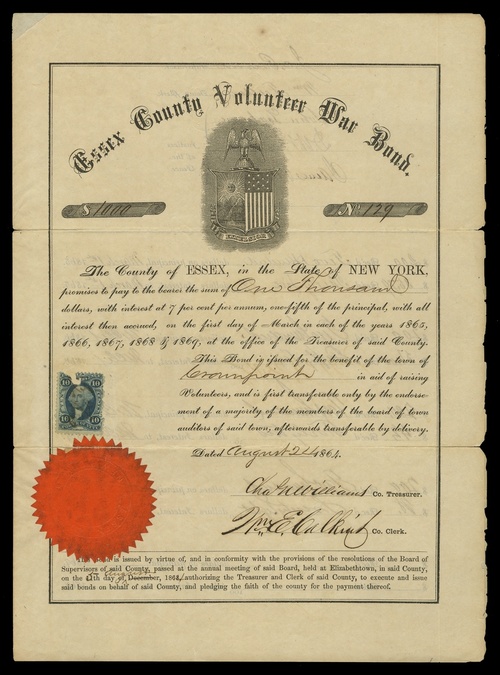 Essex County Volunteer War Bond.
$ 1000
No. 129
EXCELSIOR
The County of ESSEX, in the State of NEW YORK,
promises to pay to the bearer the sum of One Thousand
dollars, with interest at 7 per cent per annum, one-fifth of the principal, with all
interest then accrued, on the first day of March in each of the years 1865,
1866, 1867, 1868 & 1869, at the office of the Treasurer of said County.
This Bond is issued for the benefit of the town of
Crownpoint in aid of raising
Volunteers, and is first transferable only by the endorse-
ment of a majority of the members of the board of town
auditors of said town, afterwards transferable by delivery.
10 10
Dated August 24 1864.
Chas N Williams Co. Treasurer.
Wm E. Calkins Co. Clerk.
This bond is issued by virtue of, and in conformity with the provisions of the resolutions of the Board of
Supervisors of said County, passed at the annual meeting of said Board, held at Elizabethtown, in said County,
on the 11th day of December, 1863, authorizing the Treasurer and Clerk of said County, to execute and issue
said bonds on behalf of said County, and pledging the faith of the county for the payment thereof.